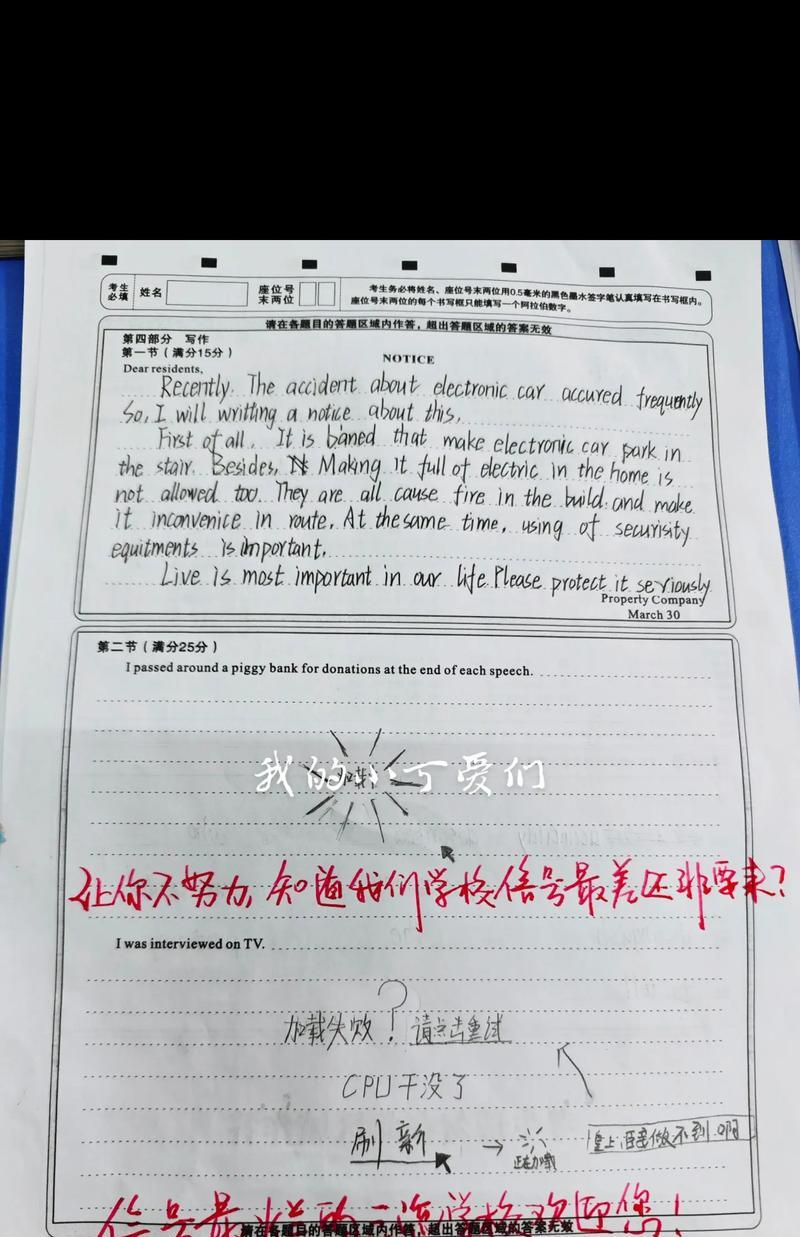 考生必填 姓名 座位号末两位 考生务必将姓名、座位号末两位用0.5毫米的黑色墨水签字笔认真填写在书写框内。
座位号末两位的每个书写框只能填写一个阿拉伯数字。
请在各题目的答题区域内作答，超出答题区域的答案无效
第四部分 写作
第一节（满分15分）
NOTICE
Dear residents,
Recently. The accident about electronic car accured frequently
So, I will writting a notice about this,
First of all, It is baned that make electronic car park in
the stair. Besides, Making it full of electric in the home is
not allowed too. They are all cause fire in the build. and make
it inconvenice in route. At the same time, using of securisity
equitments is important.
Live is most important in our life. Please protect it seriously
Property Company
March 30
第二节（满分25分）
I passed around a piggy bank for donations at the end of each speech.
我的小可爱们
让你不努力，知道我们学校信号最差还非要来？
I was interviewed on TV.
加载失败！？请点击重试
CPU干没了
刷新 → 正在加载 皇上 臣妾做不到啊
请在各题目的答题区域内作答，超出答题区域的答案无效